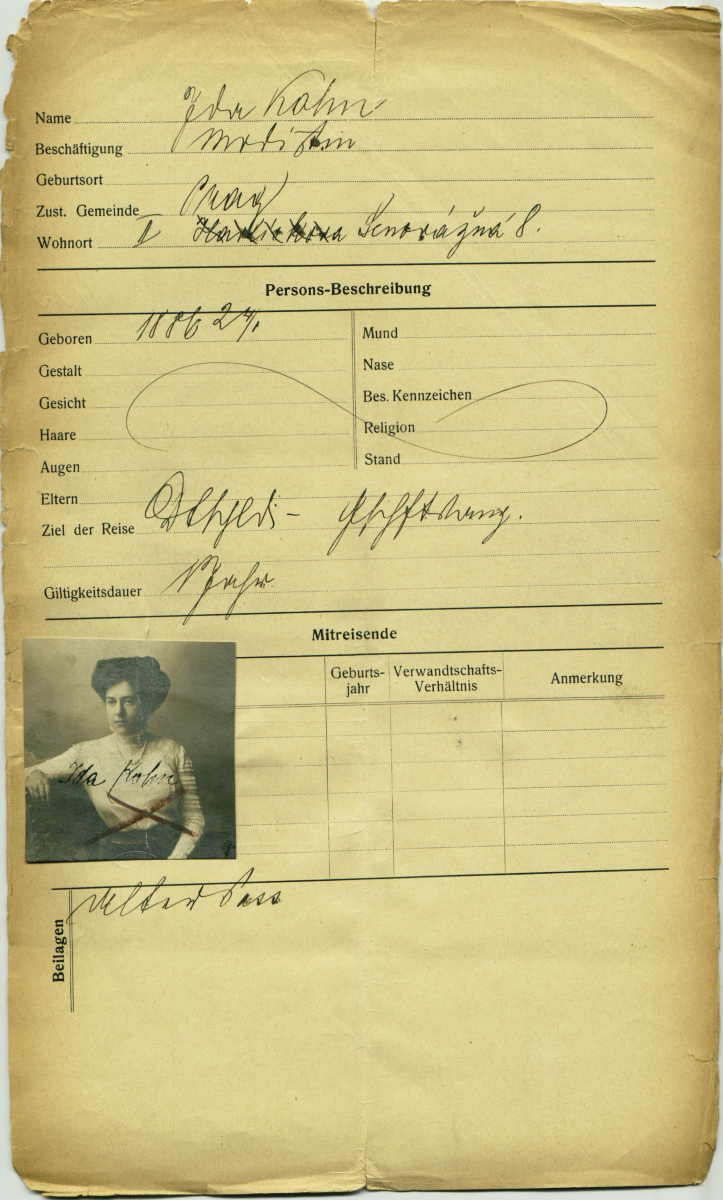 Name Ida Kohn
Beschäftigung Modistin
Geburtsort
Zust. Gemeinde Prag
Wohnort II Senovážná 8.
Persons-Beschreibung
Geboren 1886
Mund
Gestalt
Nase
Gesicht
Bes. Kennzeichen
Haare
Religion
Augen
Stand
Eltern
Ziel der Reise Dtschld -
Giltigkeitsdauer 1 Jahr
Mitreisende
Geburts-
jahr
Verwandtschafts-
Verhältnis
Anmerkung
Ida Kohn
Beilagen
alter Pass